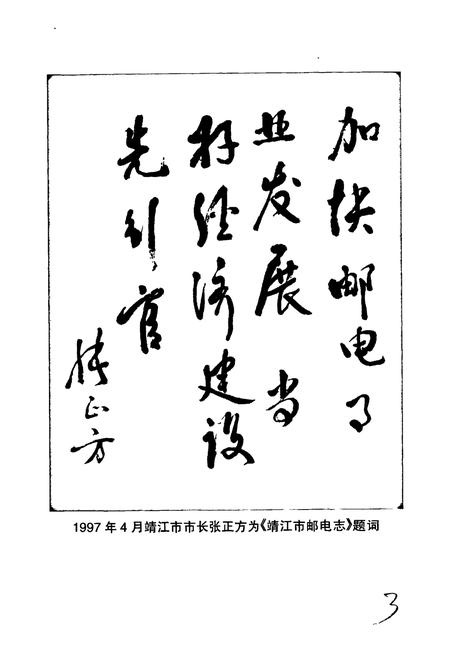 加快邮电事
业发展 当
好经济建设
先引官
张正方
1997年4月靖江市市长张正方为《靖江市邮电志》题词
3